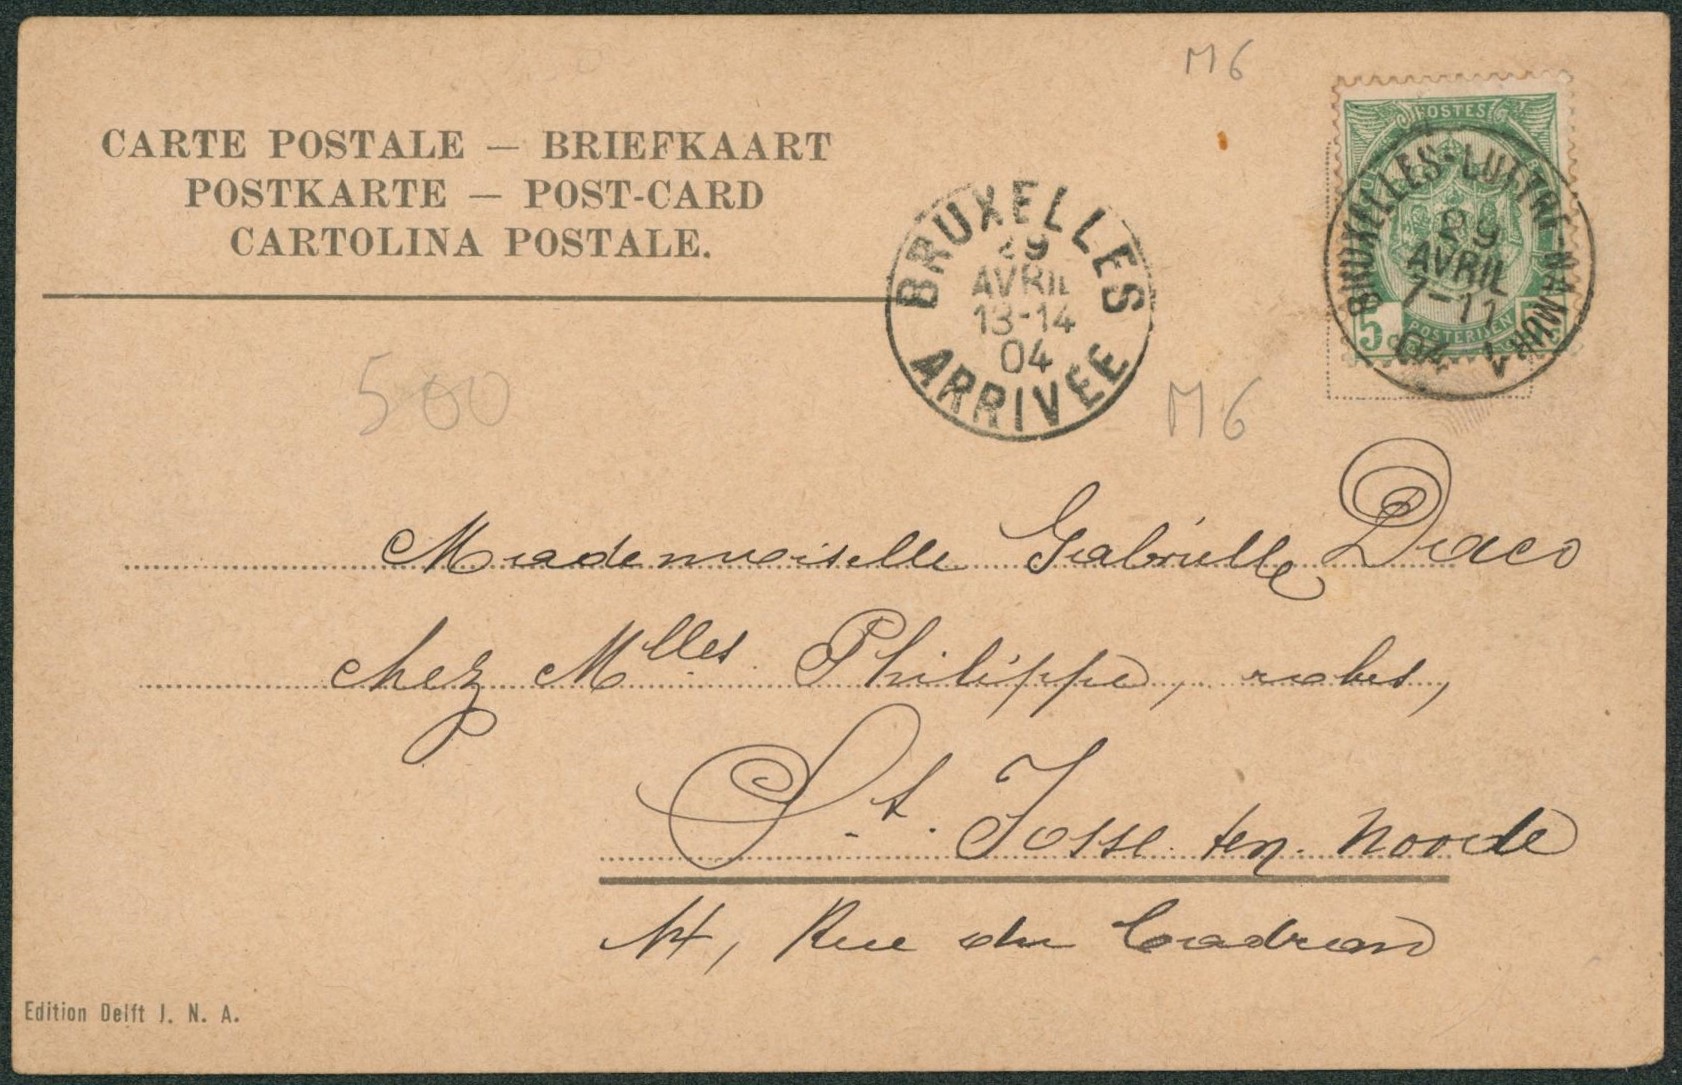 M 6
CARTE POSTALE — BRIEFKAART
POSTKARTE — POST-CARD
CARTOLINA POSTALE.
POSTES
5 c POSTERIJEN
BRUXELLES-LUTTRE-NAMUR
29
AVRIL
7-11
04
V
BRUXELLES
29
AVRIL
13-14
04
ARRIVÉE
500
M 6
Mademoiselle Gabrielle Draco
chez Mlles. Philippe, robes,
St. Josse. ten. Noode
14, Rue du Cadran
Edition Delft J. N. A.